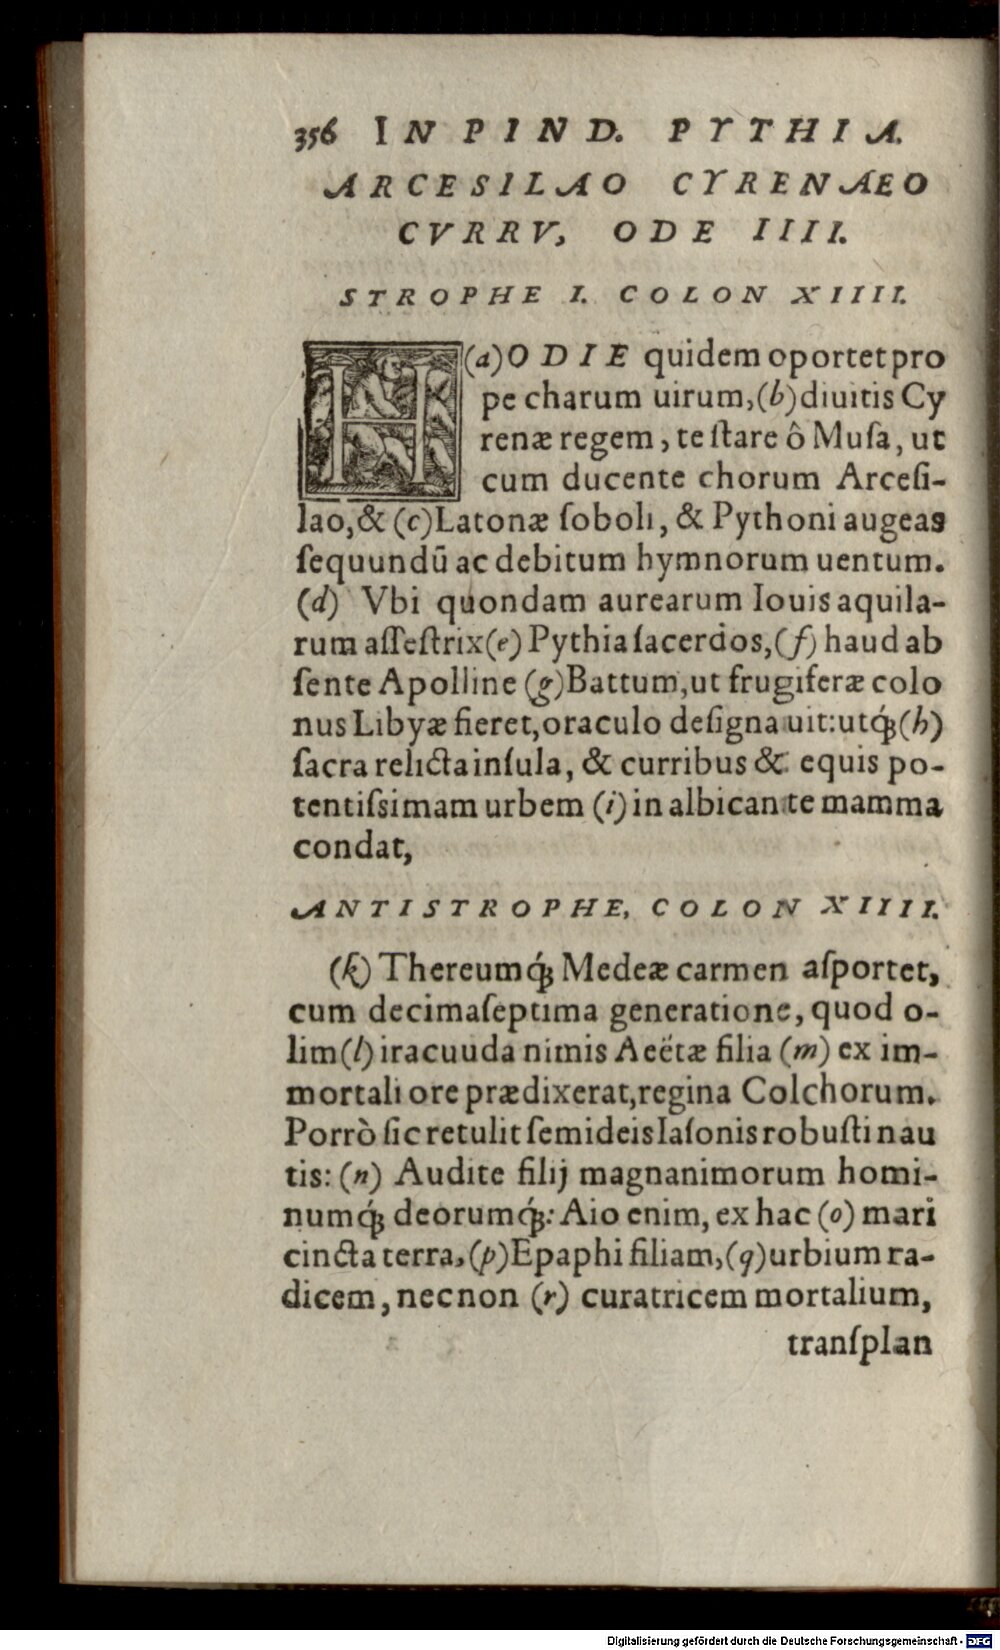 356 IN PIND. PYTHIA.
ARCESILAO CYRENAEO
CVRRV, ODE IIII.
STROPHE I. COLON XIIII.
H(a)ODIE quidem oportet pro
pe charum uirum,(b)diuitis Cy
renæ regem, te ſtare ô Muſa, ut
cum ducente chorum Arceſi-
lao,& (c)Latonæ ſoboli, & Pythoni augeas
ſequundū ac debitum hymnorum uentum.
(d) Vbi quondam aurearum Iouis aquila-
rum aſſeſtrix(e) Pythia ſacerdos,(f) haud ab
ſente Apolline (g)Battum,ut frugiferæ colo
nus Libyæ fieret,oraculo deſignauit:utq́;(h)
ſacra relicta inſula, & curribus & equis po-
tentiſsimam urbem (i) in albicante mamma
condat,
ANTISTROPHE, COLON XIIII.
(k) Thereumq́; Medeæ carmen aſportet,
cum decimaſeptima generatione, quod o-
lim(l) iracuuda nimis Aeëtæ filia (m) ex im-
mortali ore prædixerat,regina Colchorum.
Porrò ſic retulit ſemideis Iaſonis robuſti nau
tis: (n) Audite filij magnanimorum homi-
numq́; deorumq́;: Aio enim, ex hac (o) mari
cincta terra,(p)Epaphi filiam,(q)urbium ra-
dicem, necnon (r) curatricem mortalium,
tranſplan
Digitalisierung gefördert durch die Deutsche Forschungsgemeinschaft - DFG